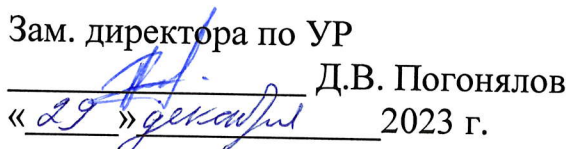 Зам. директора по УР
Д.В. Погонялов
«29» декабря 2023 г.